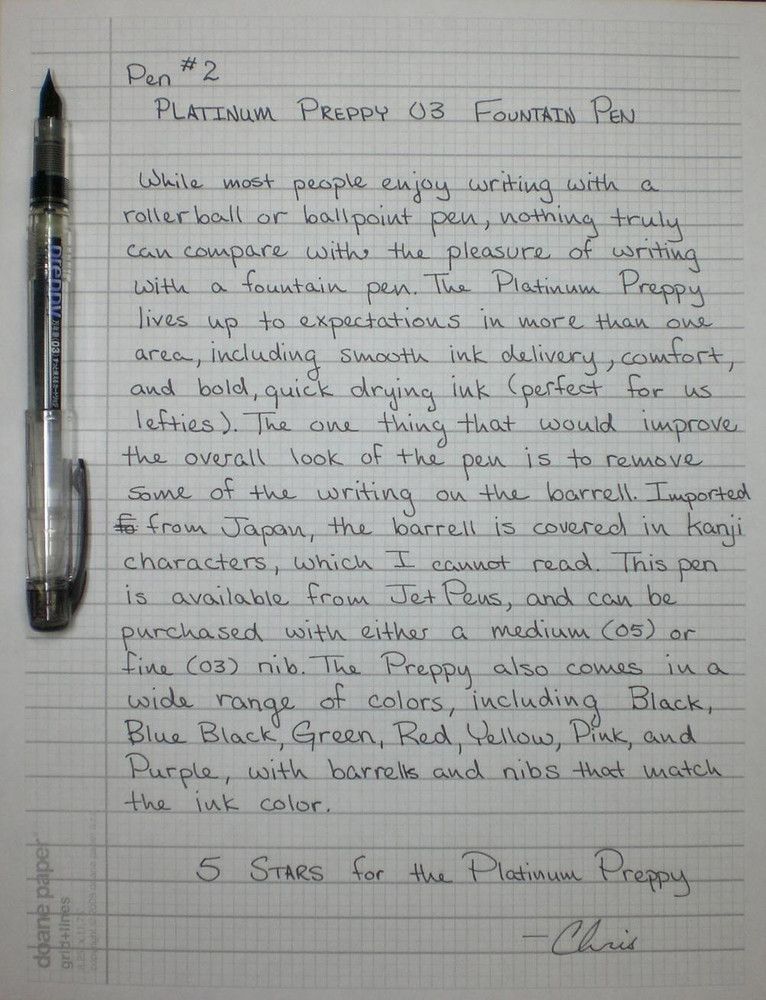 Pen #2
PLATINUM PREPPY 03 FOUNTAIN PEN
While most people enjoy writing with a
rollerball or ballpoint pen, nothing truly
can compare with the pleasure of writing
with a fountain pen. The Platinum Preppy
lives up to expectations in more than one
area, including smooth ink delivery, comfort,
and bold, quick drying ink (perfect for us
lefties). The one thing that would improve
the overall look of the pen is to remove
some of the writing on the barrell. Imported
from Japan, the barrell is covered in Kanji
characters, which I cannot read. This pen
is available from Jet Pens, and can be
purchased with either a medium (05) or
fine (03) nib. The Preppy also comes in a
wide range of colors, including Black,
Blue Black, Green, Red, Yellow, Pink, and
Purple, with barrells and nibs that match
the ink color.
5 STARS for the Platinum Preppy
—Chris
preppy
03
doane paper
grid+lines